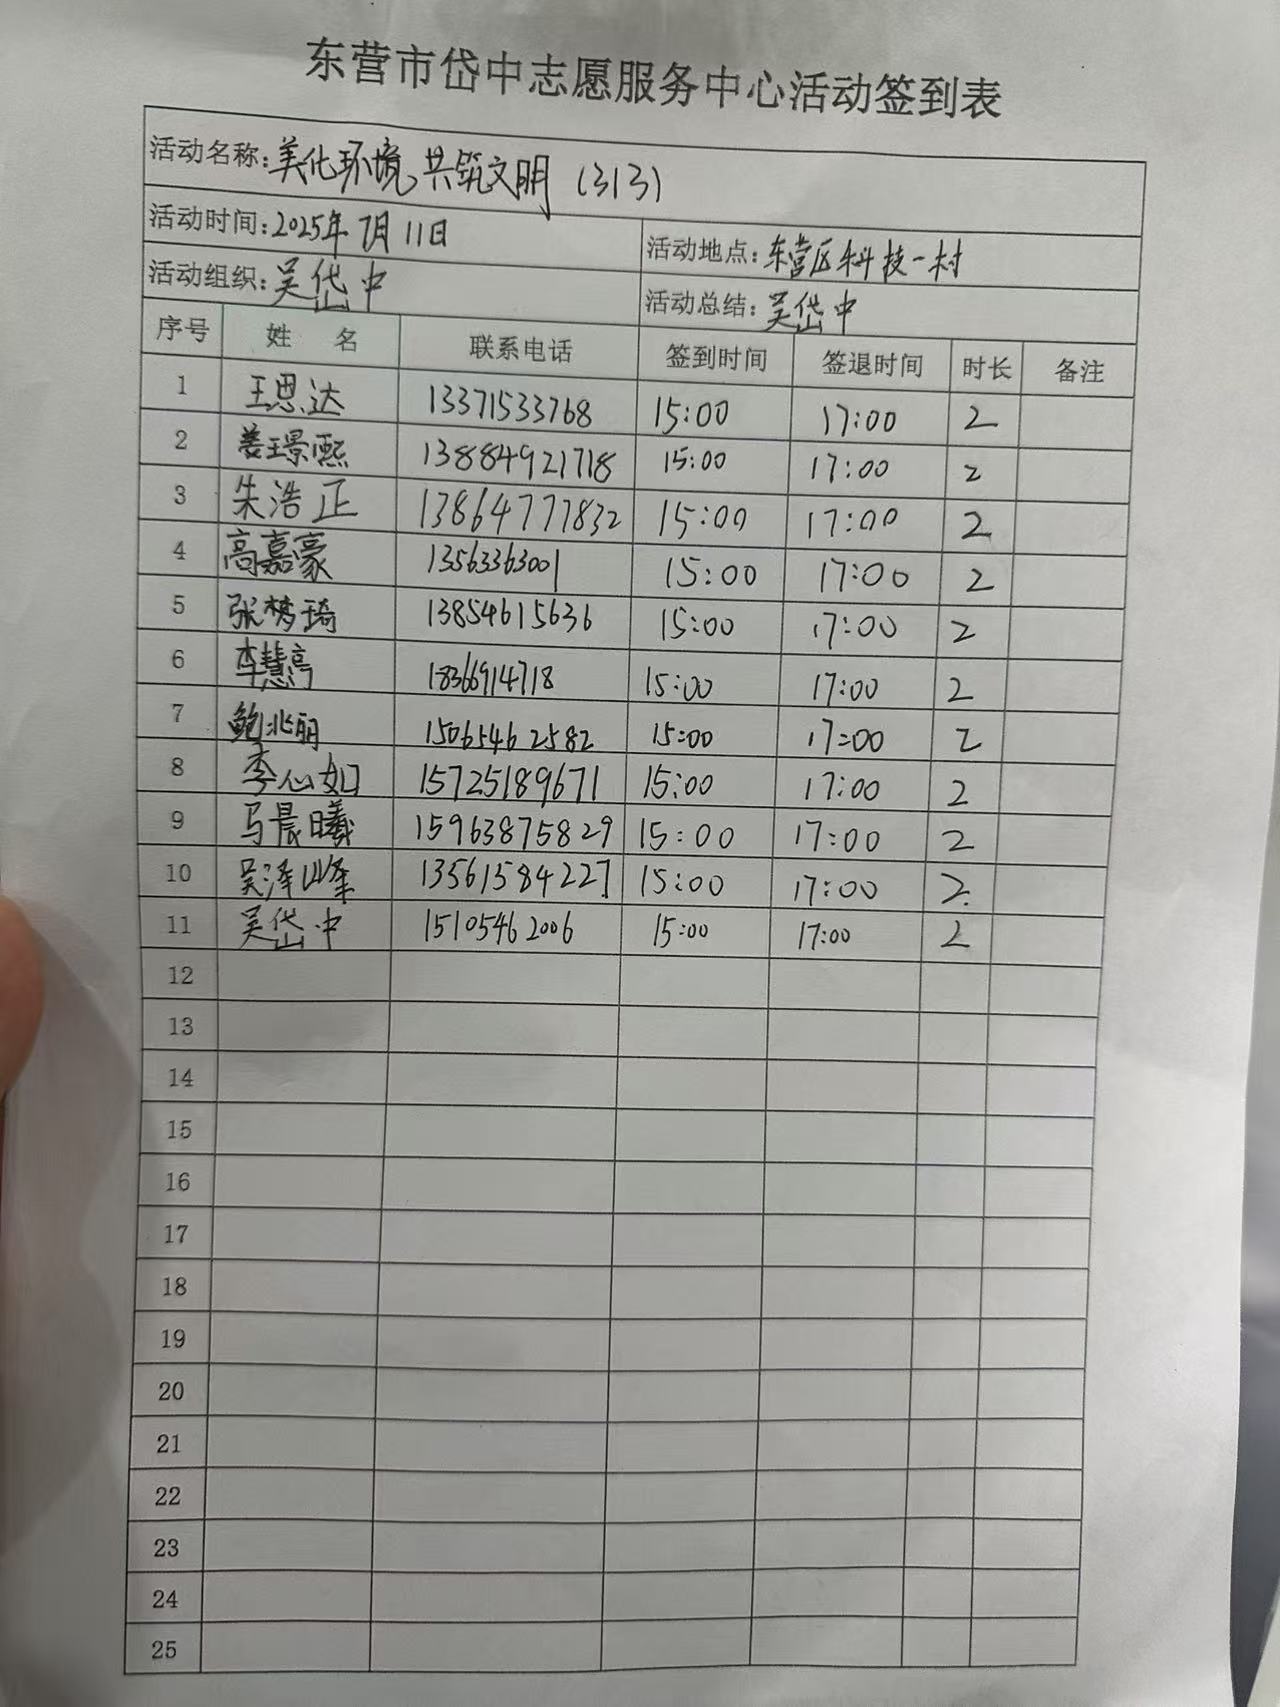 东营市岱中志愿服务中心活动签到表
活动名称:美化环境,共筑文明(313)
活动时间:2025年7月11日 活动地点:东营区科技一村
活动组织:吴岱中 活动总结:吴岱中
序号 姓 名 联系电话 签到时间 签退时间 时长 备注
1 王思达 13371533768 15:00 17:00 2
2 姜璟熙 13884921718 15:00 17:00 2
3 朱浩正 13864777832 15:00 17:00 2
4 高嘉豪 13563363001 15:00 17:00 2
5 张梦琦 13854615636 15:00 17:00 2
6 李慧 18366914718 15:00 17:00 2
7 鲍兆丽 15065462582 15:00 17:00 2
8 李心如 15725189671 15:00 17:00 2
9 马晨曦 15963875829 15:00 17:00 2
10 吴泽峰 13561584227 15:00 17:00 2
11 吴岱中 15105462006 15:00 17:00 2
12
13
14
15
16
17
18
19
20
21
22
23
24
25